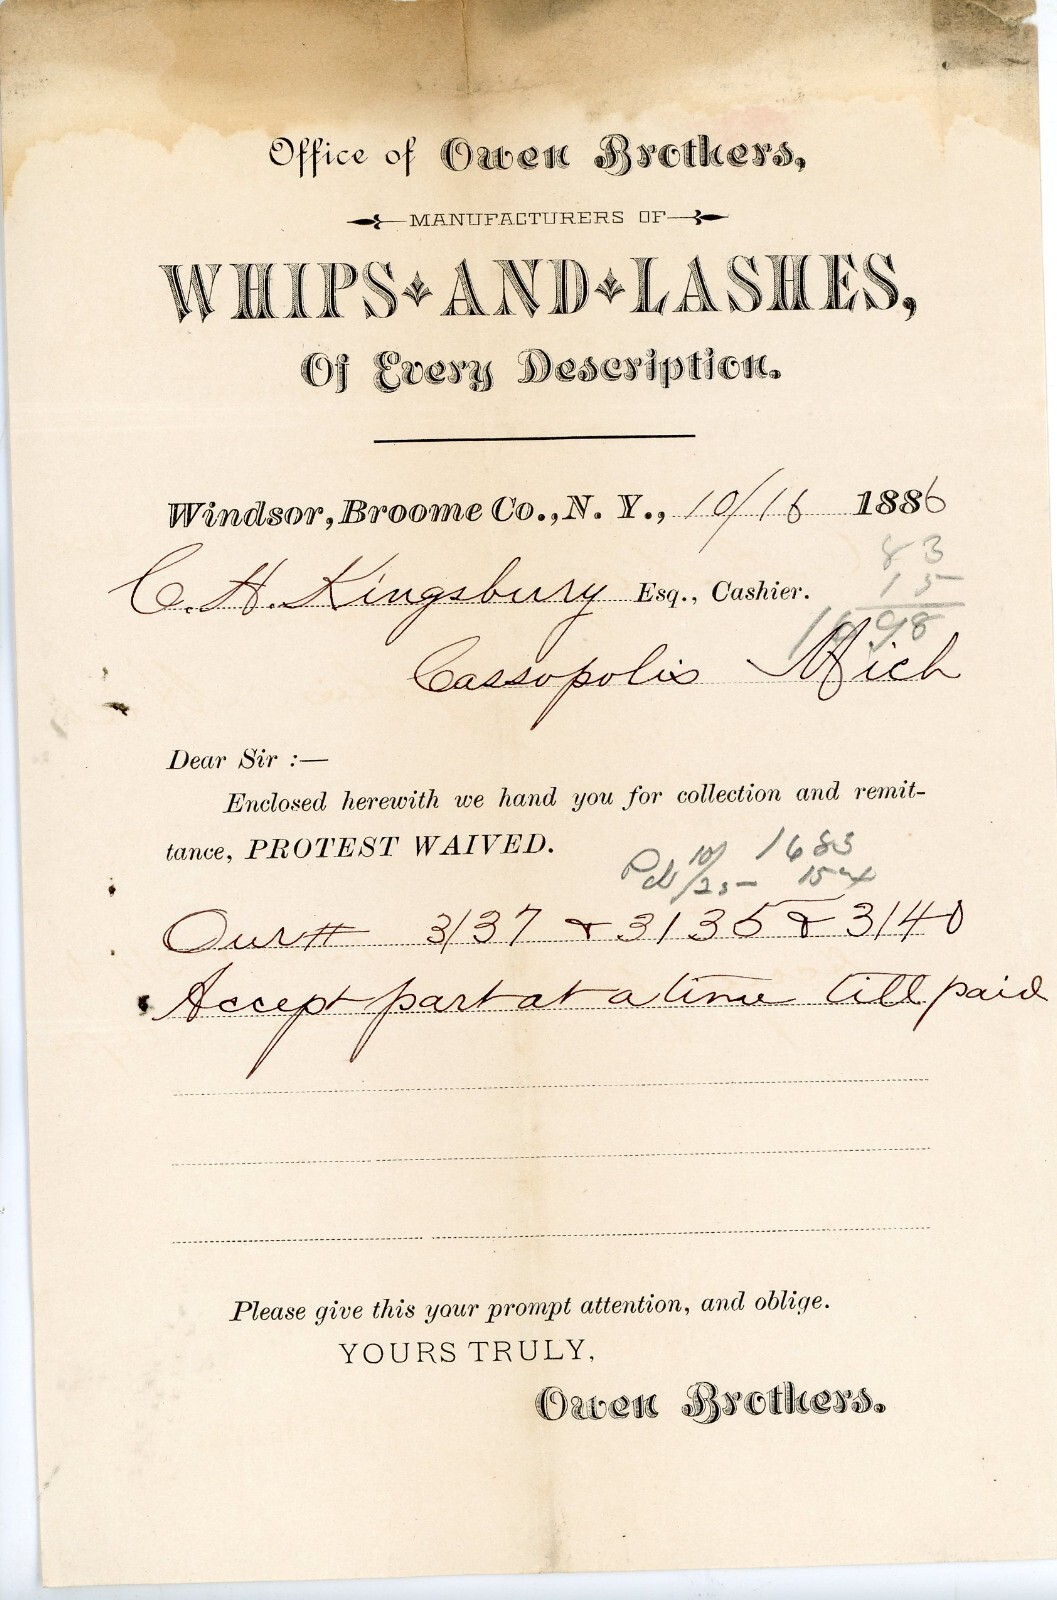 Office of Owen Brothers,
MANUFACTURERS OF
WHIPS AND LASHES,
Of Every Description.
Windsor, Broome Co., N. Y., 10/16 1886
83
15
1698
C. H. Kingsbury Esq., Cashier.
Cassopolis Mich
Dear Sir :—
Enclosed herewith we hand you for collection and remit-
tance, PROTEST WAIVED.
Pd 10/25- 1683
15
Our # 3137 & 3135 & 3140
Accept part at a time till paid
Please give this your prompt attention, and oblige.
YOURS TRULY,
Owen Brothers.